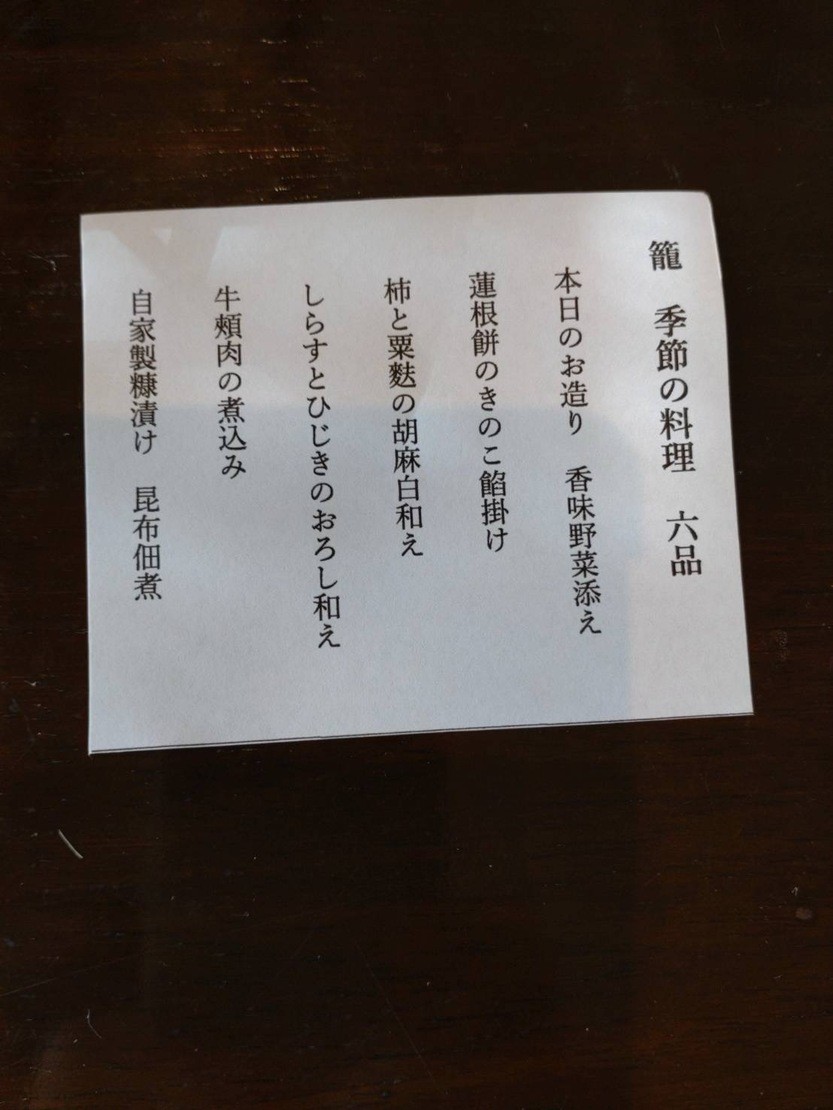 籠　季節の料理　六品
本日のお造り　香味野菜添え
蓮根餅のきのこ餡掛け
柿と粟麩の胡麻白和え
しらすとひじきのおろし和え
牛頬肉の煮込み
自家製糠漬け　昆布佃煮